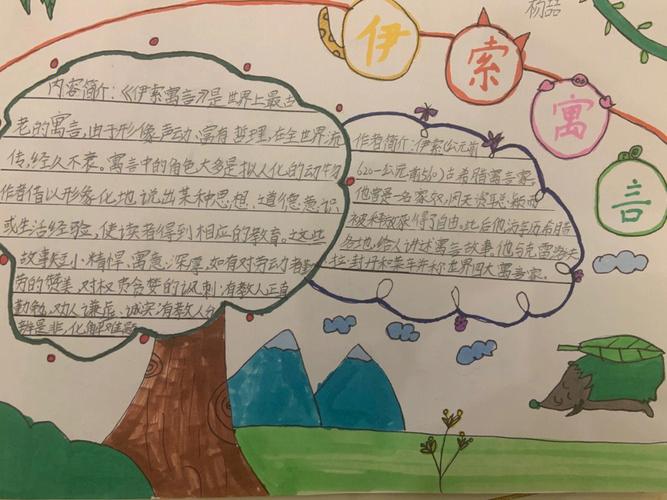 杨喆
伊索寓言
内容简介：《伊索寓言》是世界上最古
老的寓言，由于形像声动、富有哲理，在全世界流
传，经久不衰。寓言中的角色大多是拟人化的动物
作者借以形象化地说出某种思想、道德意识
或生活经验，使读者得到相应的教育。这些
故事短小精悍，寓意深厚，如有对劳动者勤
劳的赞美，对权贵贪婪的讽刺；有教人正直
勤勉，劝人谦虚、诚实；有教人分
辨是非，化解难题
作者简介：伊索（公元前
620-公元前560）古希腊寓言家，
他曾是一名家奴，因天资聪颖而
被释放获得了自由。此后他游历希腊
各地，给人讲述寓言故事，他与克雷洛夫
拉·封丹和莱辛并称世界四大寓言家